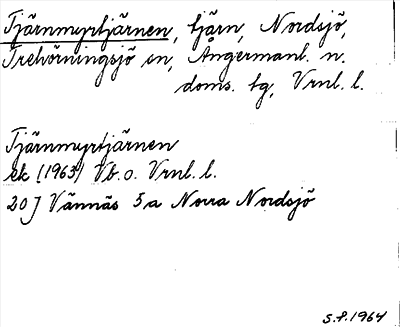 Tjärnmyrtjärnen, tjärn, Nordsjö,
Trehörningsjö sn, Ångermanl. n.
doms. tg, Vrnl. l.
Tjärnmyrtjärnen
ek (1963) Vb. o. Vrnl. l.
20 J Vännäs 5a Norra Nordsjö
S.P. 1964